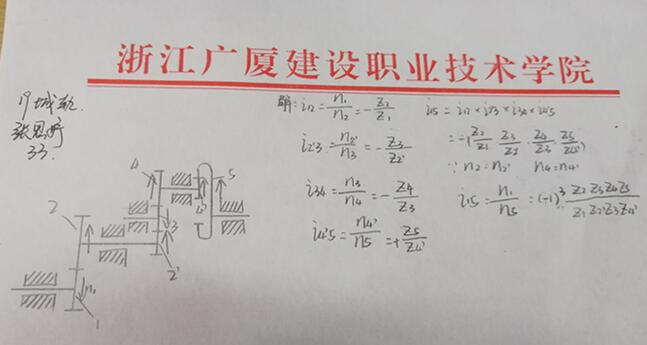 浙江广厦建设职业技术学院
19城轨
33
解: i12 = n1/n2 = -z2/z1
i2'3 = n2'/n3 = -z3/z2'
i34 = n3/n4 = -z4/z3
i4'5 = n4'/n5 = +z5/z4'
i15 = i12 × i2'3 × i34 × i4'5
= -(z2/z1 · z3/z2' · z4/z3 · z5/z4')
∵ n2 = n2' n4 = n4'
i15 = n1/n5 = (-1)^3 z2z3z4z5/z1z2'z3z4'
4
5
2
4'
3
2'
n1
1